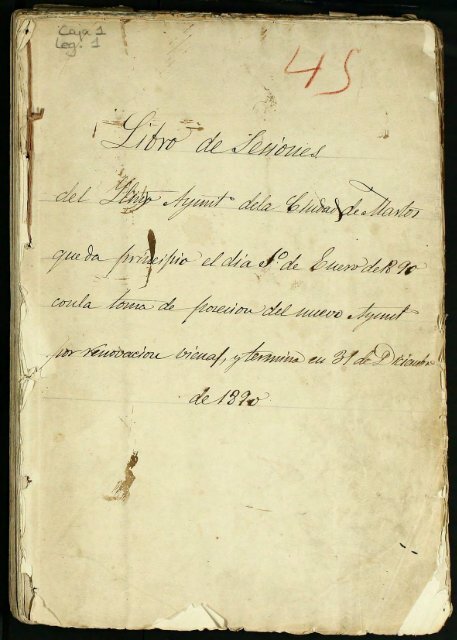 Caja 1
Leg. 1
45
Libro de Sesiones
del Yltmo Ayuntº dela Ciudad de Martos
que da principio el dia 1º de Enero de 1890
con la toma de posecion del nuevo Ayuntº
por renovacion vienal, y termina en 31 de Diciembre
de 1890